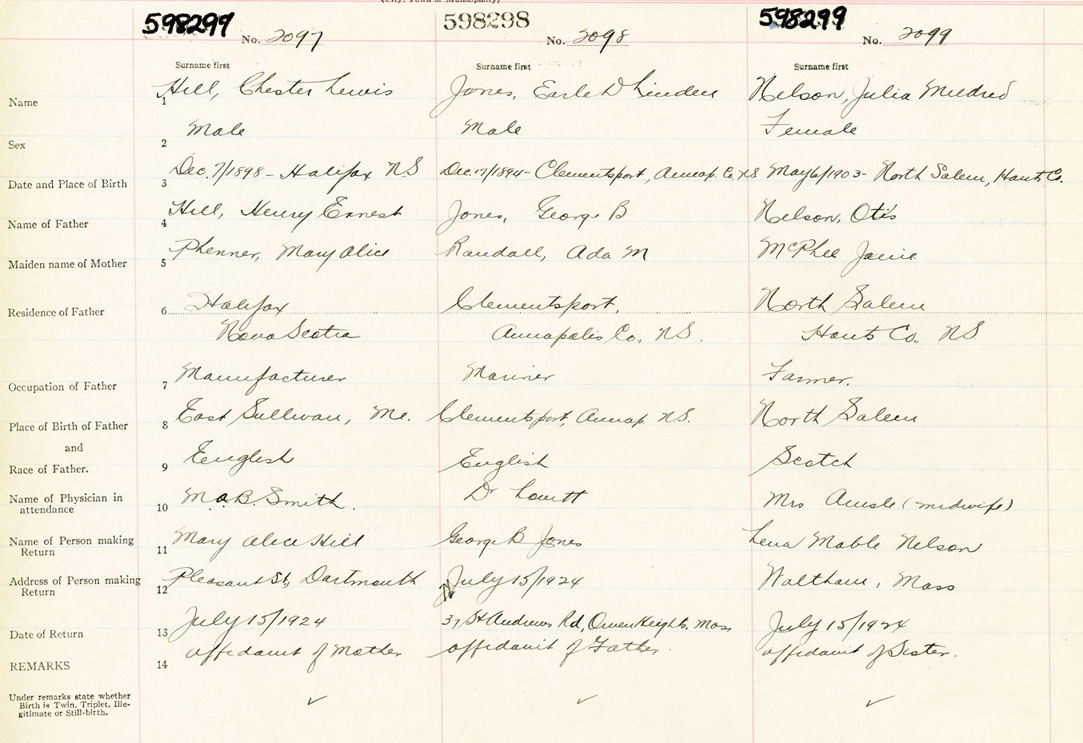 (City, Town or Municipality)
598299 598298 598299
No. 2097 No. 2098 No. 2099
Surname first Surname first Surname first
Name 1 Hill, Chester Lewis Jones, Earle D Linden Nelson, Julia Mildred
Sex 2 Male Male Female
Date and Place of Birth 3 Dec. 7/1898 - Halifax NS Dec. 17/1894 - Clementsport, Annap. Co. NS May 6/1903 - North Salem, Hants Co.
Name of Father 4 Hill, Henry Ernest Jones, George B Nelson, Otis
Maiden name of Mother 5 Phenner, Mary Alice Randall, Ada M McPhee Janie
Residence of Father 6 Halifax Clementsport, North Salem
Nova Scotia Annapolis Co. NS. Hants Co. NS
Occupation of Father 7 Manufacturer Mariner Farmer.
Place of Birth of Father 8 East Sullivan, Me. Clementsport, Annap NS. North Salem
and
Race of Father. 9 English English Scotch
Name of Physician in
attendance 10 M.a.B. Smith. Dr Lovitt Mrs (midwife)
Name of Person making
Return 11 Mary Alice Hill George B Jones Lena Mable Nelson
Address of Person making
Return 12 Pleasant St, Dartmouth July 15/1924 Waltham, Mass
Date of Return 13 July 15/1924 37 St Andrews Rd, Mass July 15/1924
REMARKS 14 affidavit of Mother affidavit of Father. affidavit of Sister.
Under remarks state whether
Birth is Twin, Triplet, Ille-
gitimate or Still-birth. ✓ ✓ ✓